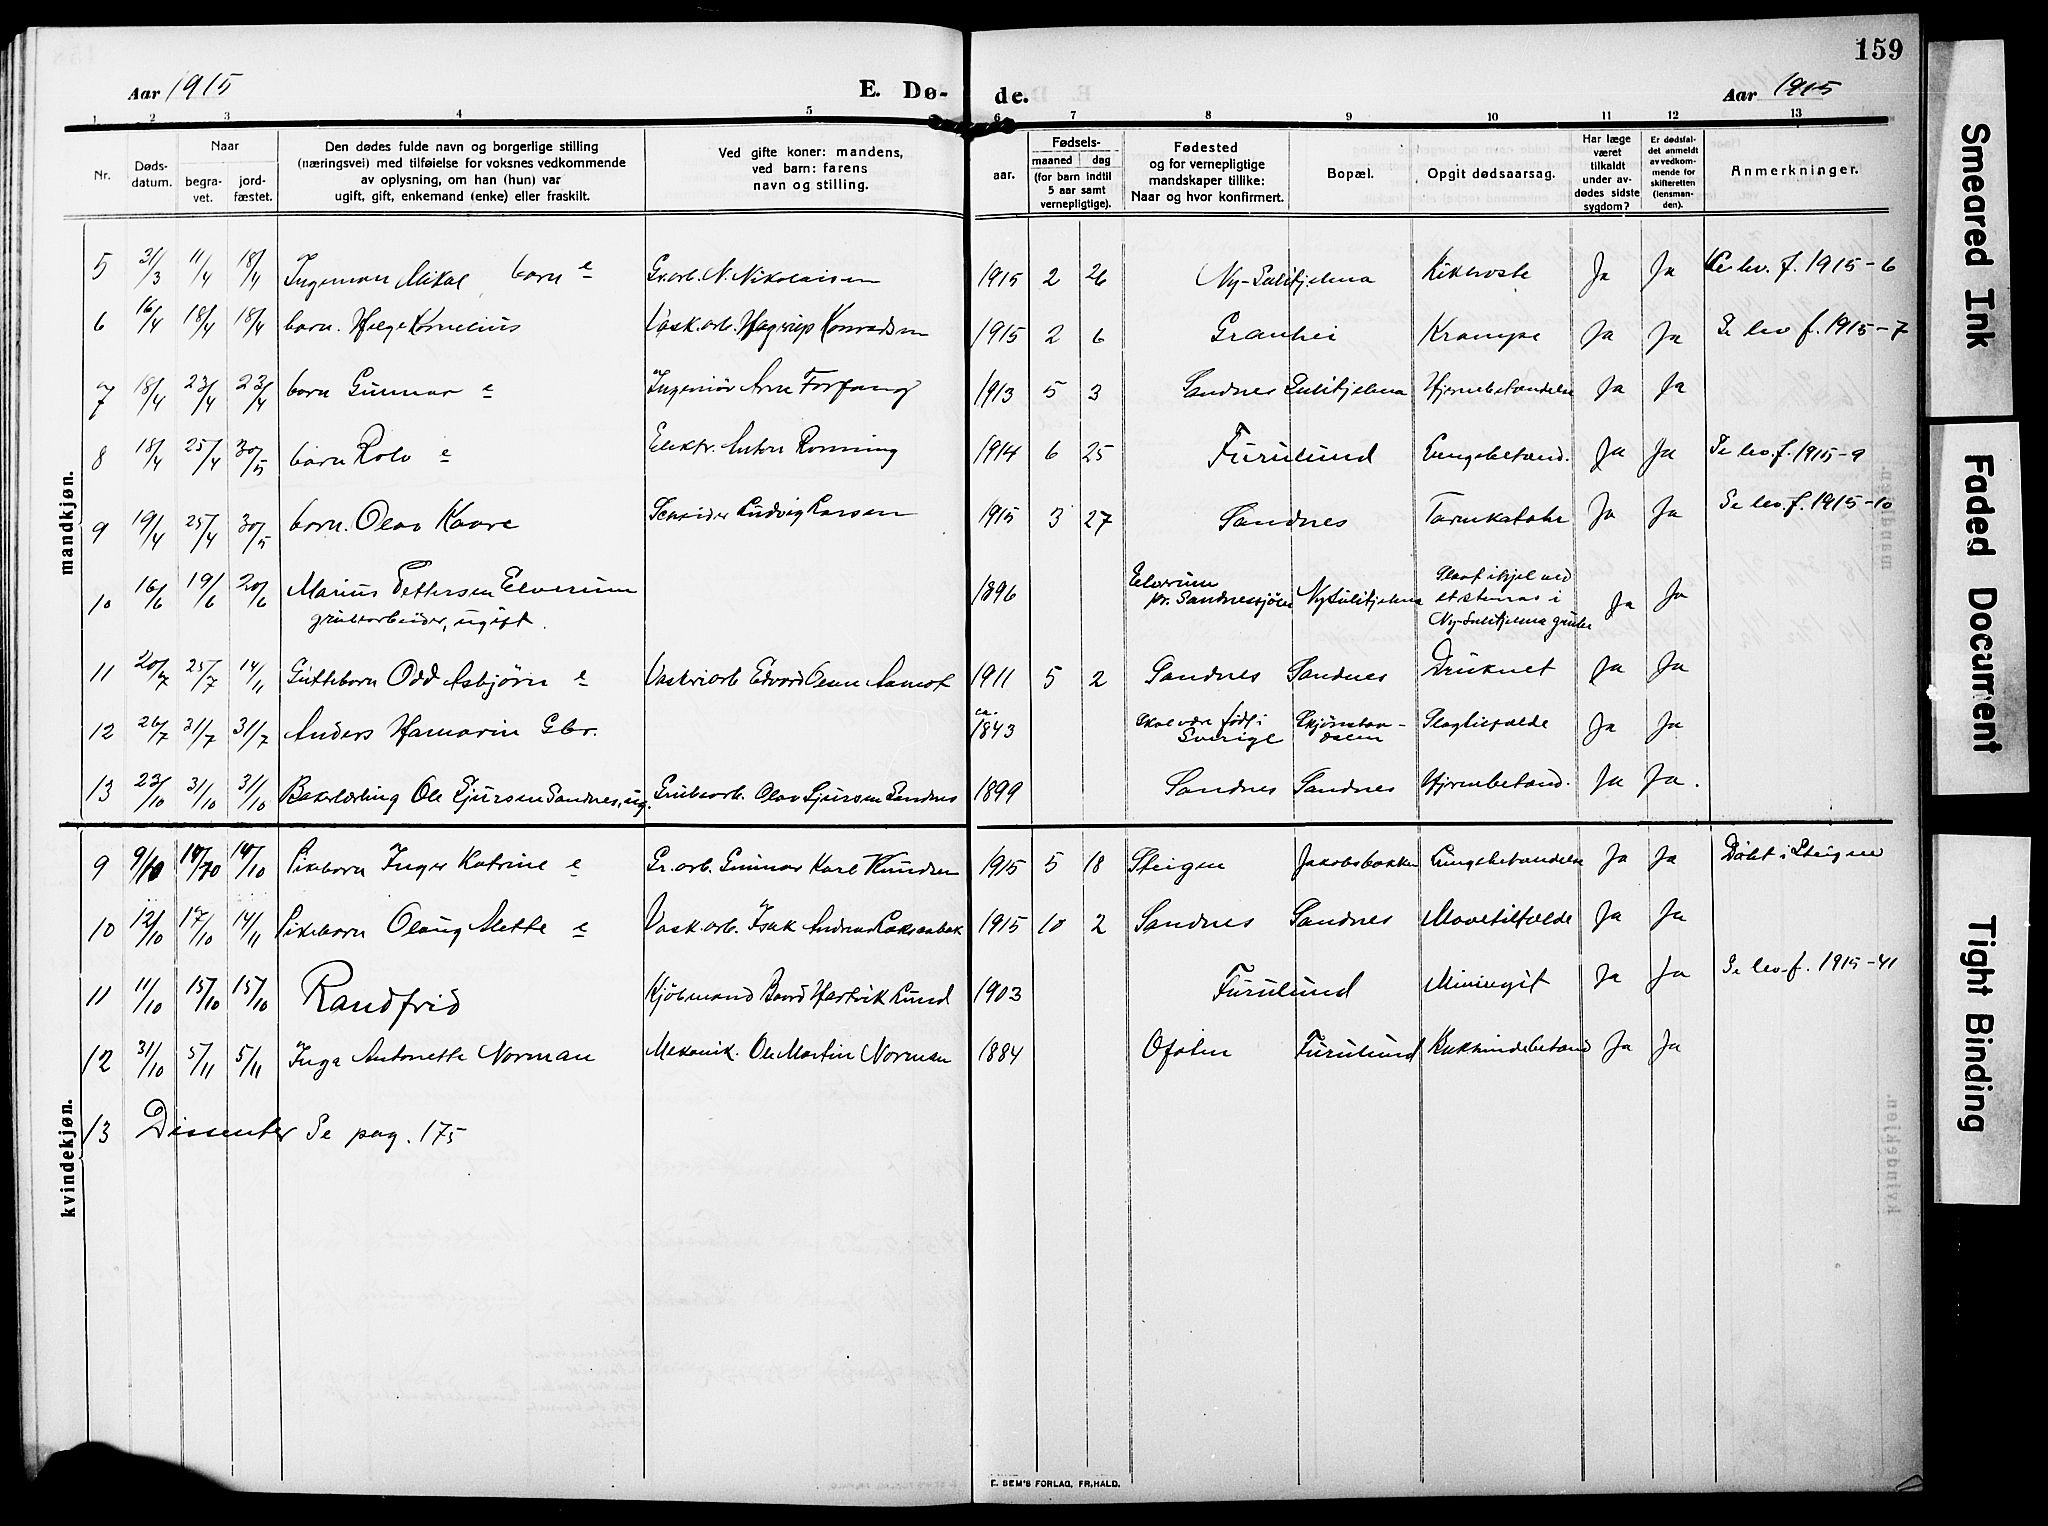 159
Aar 1915
E. Dø-
de.
Aar 1915
1 2 3 4 5 6 7 8 9 10 11 12 13
Nr.
Døds-
datum.
Naar
begra-
vet.
jord-
fæstet.
Den dødes fulde navn og borgerlige stilling
(næringsvei) med tilføielse for voksnes vedkommende
av oplysning, om han (hun) var
ugift, gift, enkemand (enke) eller fraskilt.
Ved gifte koner: mandens,
ved barn: farens
navn og stilling.
Fødsels-
aar.
maaned dag
(for barn indtil
5 aar samt
vernepligtige).
Fødested
og for vernepligtige
mandskaper tillike:
Naar og hvor konfirmert.
Bopæl.
Opgit dødsaarsag.
Har læge
været
tilkaldt
under av-
dødes sidste
sygdom?
Er dødsfal-
det anmeldt
av vedkom-
mende for
skifteretten
(lensman-
den).
Anmerkninger.
mandkjøn.
5 31/3 11/4 18/4 Ingeman Mikal barn e Gr.arb. N. Nikolaisen 1915 2 26 Ny-Sulitjelma Kikhoste Ja Ja Se lev. f. 1915-6
6 16/4 18/4 18/4 barn. Helge Kornelius Vask.arb. Konradsen 1915 2 6 Granhei Krampe Ja Ja Se lev f. 1915-7
7 18/4 23/4 23/4 barn Gunnar e Ingeniør Arne Forfang 1913 5 3 Sandnes Sulitjelma Hjernebetændelse Ja Ja
8 18/4 25/4 30/5 barn Rolv e Elektr. Anton Rønning 1914 6 25 Furulund Lungebetænd. Ja Ja Se lev. f. 1915-9
9 19/4 25/4 30/5 barn. Olav Kaare Ludvig Larsen 1915 3 27 Sandnes Tarmkatahr Ja Ja Se lev. f. 1915-10
10 16/6 19/6 20/6 Marius Pettersen Elverum 1896 Elverum Ny Sulitjelma Slaat ihjel ved
grubearbeider, ugift. pr. Sandnessjøen et stenras i Ja Ja
Ny-Sulitjelma grube
11 20/7 25/7 14/11 Guttebarn Odd Asbjørn e Vaskeriarb Edvard Olsen Aamot 1911 5 2 Sandnes Sandnes Druknet Ja Ja
12 26/7 31/7 31/7 Anders Hamarin Gbr. ca. 1843 skal være født i Skjønstaa- Slagtilfælde Ja Ja
Sverige dalen
13 23/10 31/10 31/10 Bakerlærling Ole Sjursen Sandnes, ug. Grubearb. Olav Sjursen Sandnes 1899 Sandnes Sandnes Hjernebetænd. Ja Ja.
kvindekjøn.
9 9/10 14/10 14/10 Pikebarn Inger Katrine e Gr.arb. Gunnar Karl Knudsen 1915 5 18 Steigen Jakobsbakken Lungebetændelse Ja Ja Døbt i Steigen
10 12/10 17/10 14/11 Pikebarn Olaug Mette e Vask.arb. Isak Andreas Laksaabak 1915 10 2 Sandnes Sandnes Mavetilfælde Ja Ja
11 11/10 15/10 15/10 Randfrid Kjøbmand Baard Hartvik Lund 1903 Furulund Ja Ja Se lev. f. 1915-41
12 31/10 5/11 5/11 Inga Antonette Norman Mekanik. Ole Martin Norman 1884 Ofoten Furulund Bukhindebetænd Ja Ja
13 Dissenter Se pag. 175
E. SEM'S FORLAG, FR,HALD.
Smeared Ink
Faded Document
Tight Binding